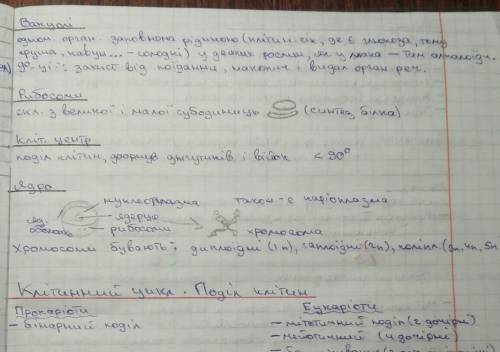 Вакуолі
одном. орган. заповнена рідиною (клітин. сік, де є глюкоза, тому
груша, кавун... - солодкі) у деяких рослин, як у мака - там алкалоїди.
ф-ції: захист від поїдання, накопич і видал орган. реч.
Рибосоми
скл. з великої і малої субодиниць (синтез білка)
Кліт. центр
поділ клітин, формув джгутиків і війок < 90°
Ядро
нуклеоплазма також є каріоплазма
яд. оболонка
ядерце
рибосоми
хромосома
Хромосоми бувають: диплоїдні (1n), гаплоїдні (2n), поліпл. (3n, 4n, 5n
Клітинний цикл. Поділ клітин
Прокаріоти
- бінарний поділ
Еукаріоти
- мітотичний поділ (2 дочірні)
- мейотичний (4 дочірні)